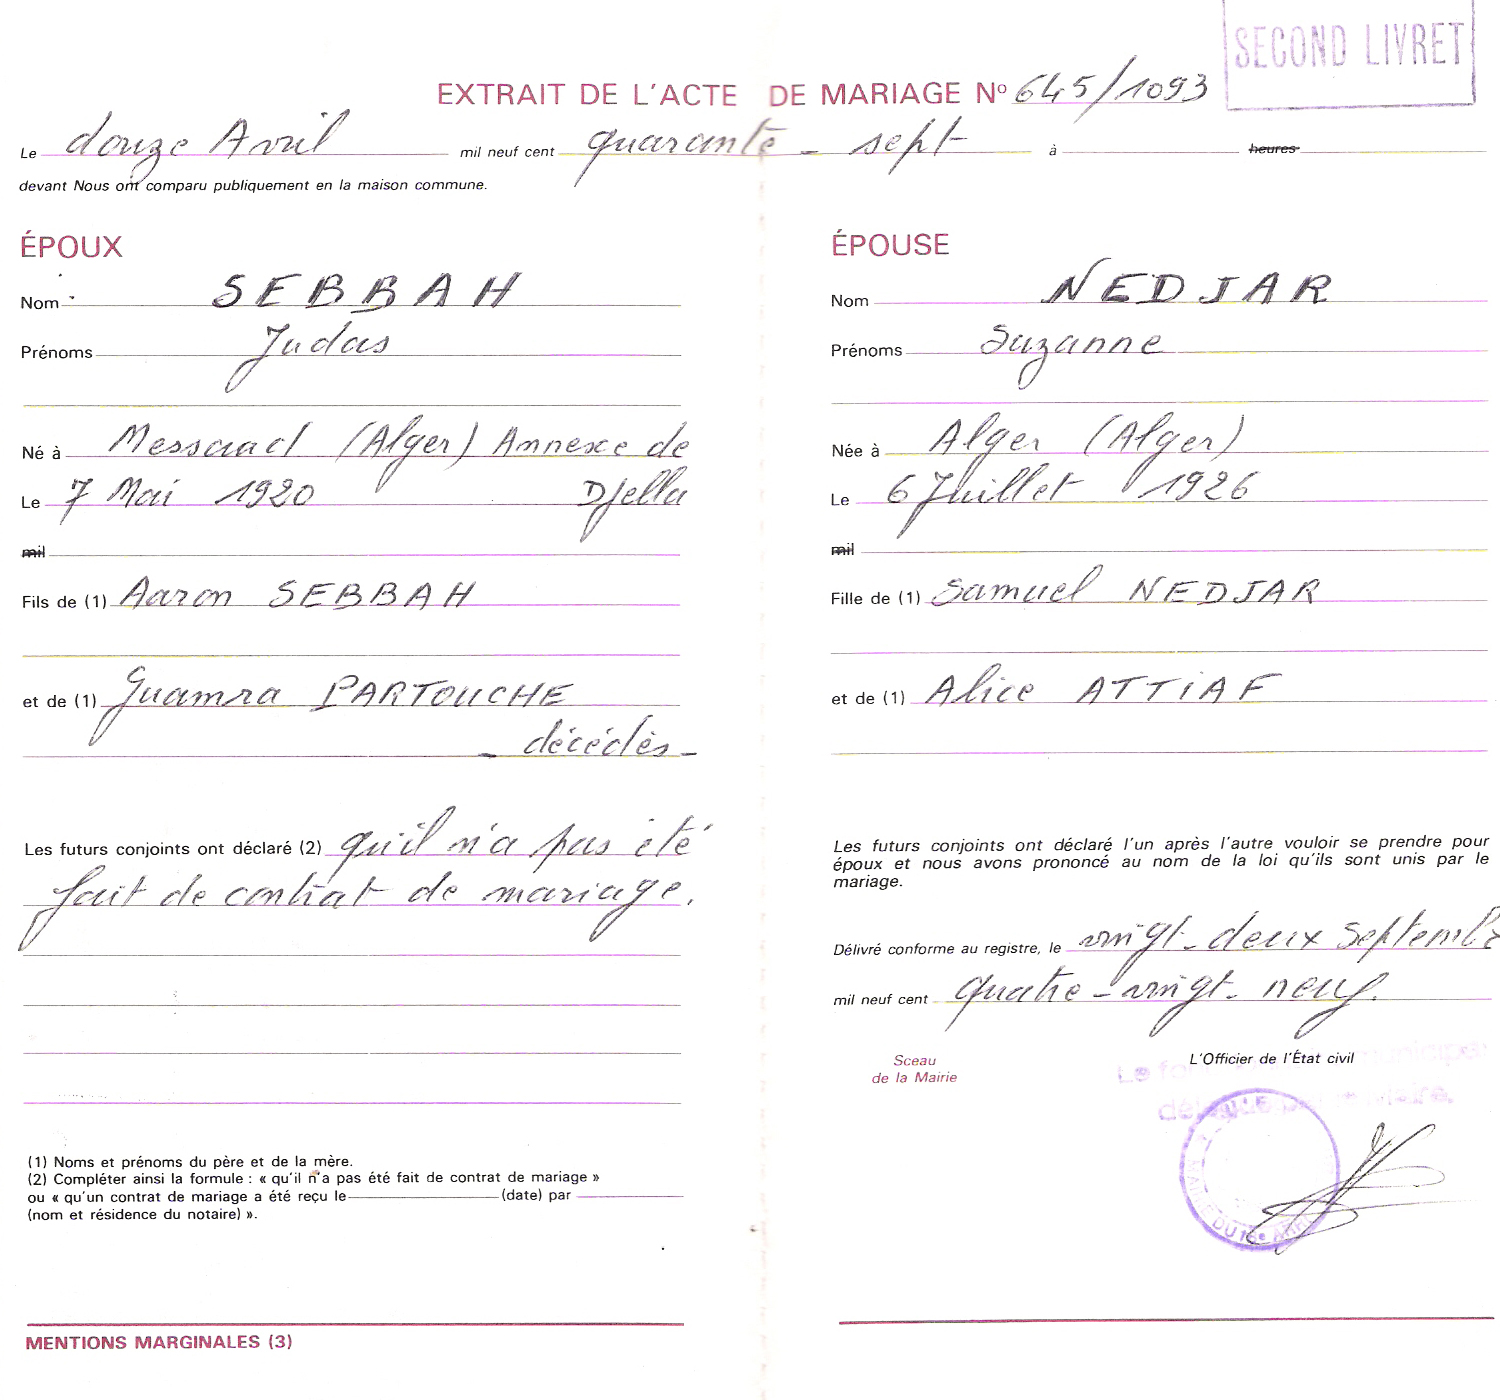 SECOND LIVRET
EXTRAIT DE L'ACTE DE MARIAGE Nº 645/1093
Le douze Avril mil neuf cent quarante - sept à heures
devant Nous ont comparu publiquement en la maison commune.
ÉPOUX
Nom SEBBAH
Prénoms Judas
Né à Messaad (Alger) Annexe de
Le 7 Mai 1920 Djelfa
mil
Fils de (1) Aaron SEBBAH
et de (1) Guamra PARTOUCHE
- décédés -
Les futurs conjoints ont déclaré (2) qu'il n'a pas été
fait de contrat de mariage.
(1) Noms et prénoms du père et de la mère.
(2) Compléter ainsi la formule : « qu'il n'a pas été fait de contrat de mariage »
ou « qu'un contrat de mariage a été reçu le (date) par
(nom et résidence du notaire) ».
MENTIONS MARGINALES (3)
ÉPOUSE
Nom NEDJAR
Prénoms Suzanne
Née à Alger (Alger)
Le 6 Juillet 1926
mil
Fille de (1) Samuel NEDJAR
et de (1) Alice ATTIAF
Les futurs conjoints ont déclaré l'un après l'autre vouloir se prendre pour
époux et nous avons prononcé au nom de la loi qu'ils sont unis par le
mariage.
Délivré conforme au registre, le vingt-deux Septembre
mil neuf cent quatre-vingt-neuf.
Sceau
de la Mairie
L'Officier de l'État civil
MAIRIE DU 16e ARR